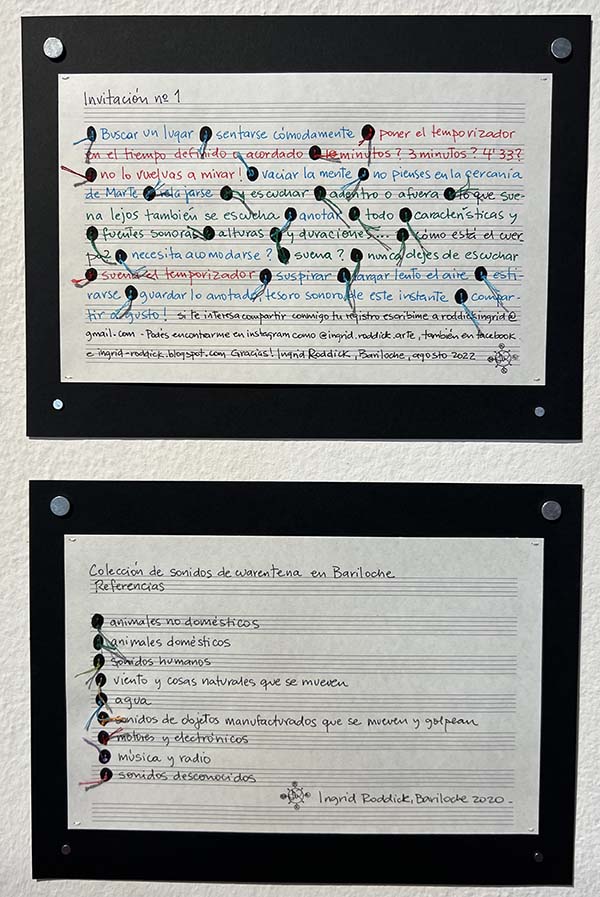 Invitación nº 1
Buscar un lugar sentarse cómodamente poner el temporizador
en el tiempo definido o acordado minutos? 3 minutos? 4'33?
no lo vuelvas a mirar! vaciar la mente no pienses en la cercanía
de Marte relajarse y escuchar adentro o afuera lo que sue-
na lejos también se escucha anotar todo características y
fuentes sonoras alturas y duraciones... cómo está el cuer
po? necesita acomodarse? suena? nunca dejes de escuchar
suena el temporizador suspirar largar lento el aire esti-
rarse guardar lo anotado, tesoro sonoro de este instante compar-
tir a gusto! si te interesa compartir conmigo tu registro escribime a roddickingrid@
gmail.com - Podés encontrarme en instagram como @ingrid.roddick.arte, también en facebook
e ingrid-roddick.blogspot.com Gracias! Ingrid Roddick, Bariloche, agosto 2022
Colección de sonidos de cuarentena en Bariloche
Referencias
animales no domésticos
animales domésticos
sonidos humanos
viento y cosas naturales que se mueven
agua
sonidos de objetos manufacturados que se mueven y golpean
motores y electrónicos
música y radio
sonidos desconocidos
Ingrid Roddick, Bariloche 2020-